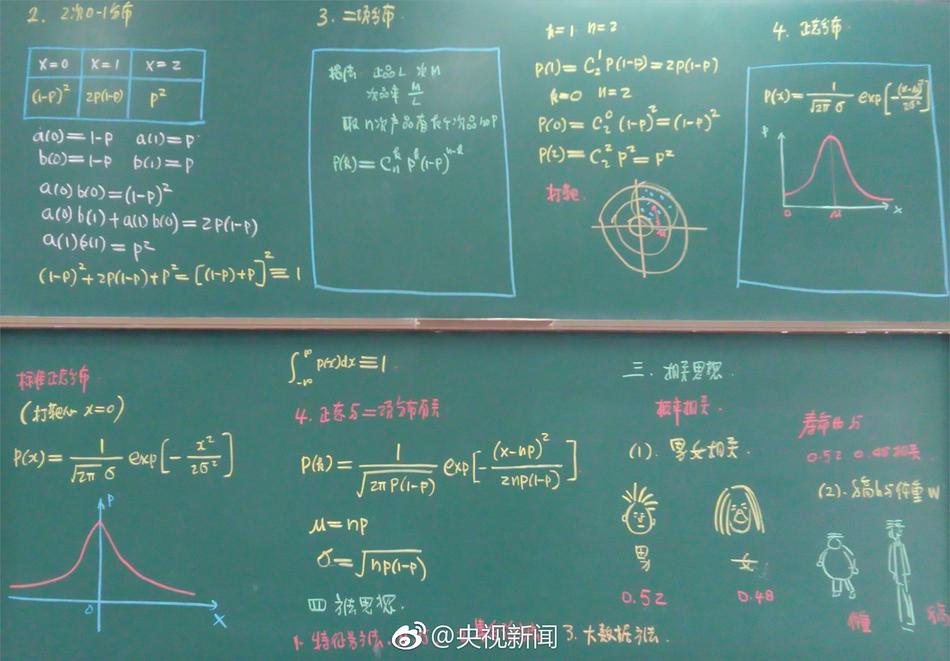 2. 2次0-1分布
x=0 x=1 x=2
(1-p)² 2p(1-p) p²
a(0)=1-p a(1)=p
b(0)=1-p b(1)=p
a(0)b(0)=(1-p)²
a(0)b(1)+a(1)b(0)=2p(1-p)
a(1)b(1)=p²
(1-p)²+2p(1-p)+p²=[(1-p)+p]²≡1
3. 二项分布
正品L 次M
次品率 M/L
取n次产品有k个次品的P
P(k)=Cₙᵏ pᵏ(1-p)ⁿ⁻ᵏ
k=1 n=2
P(1)=C₂¹P(1-p)=2p(1-p)
k=0 n=2
P(0)=C₂⁰(1-p)²=(1-p)²
P(2)=C₂²P²=p²
打靶
4. 正态分布
P(x)=1/(√2π σ) exp[-(x-μ)²/2σ²]
P
0 μ x
标准正态分布
(打靶 x=0)
P(x)=1/(√2π σ) exp[-x²/2σ²]
P
0 x
∫₋∞^∞ p(x)dx≡1
4. 正态与二项分布有关
P(k)=1/√2πP(1-p) exp[-(x-np)²/2np(1-p)]
μ=np
σ=√np(1-p)
四
1. 特征
3. 大数据方法.
三. 相关思想.
概率相关.
(1). 男女相关.
男 女
0.52 0.48
0.52
(2). 身高h与体重W
@央视新闻